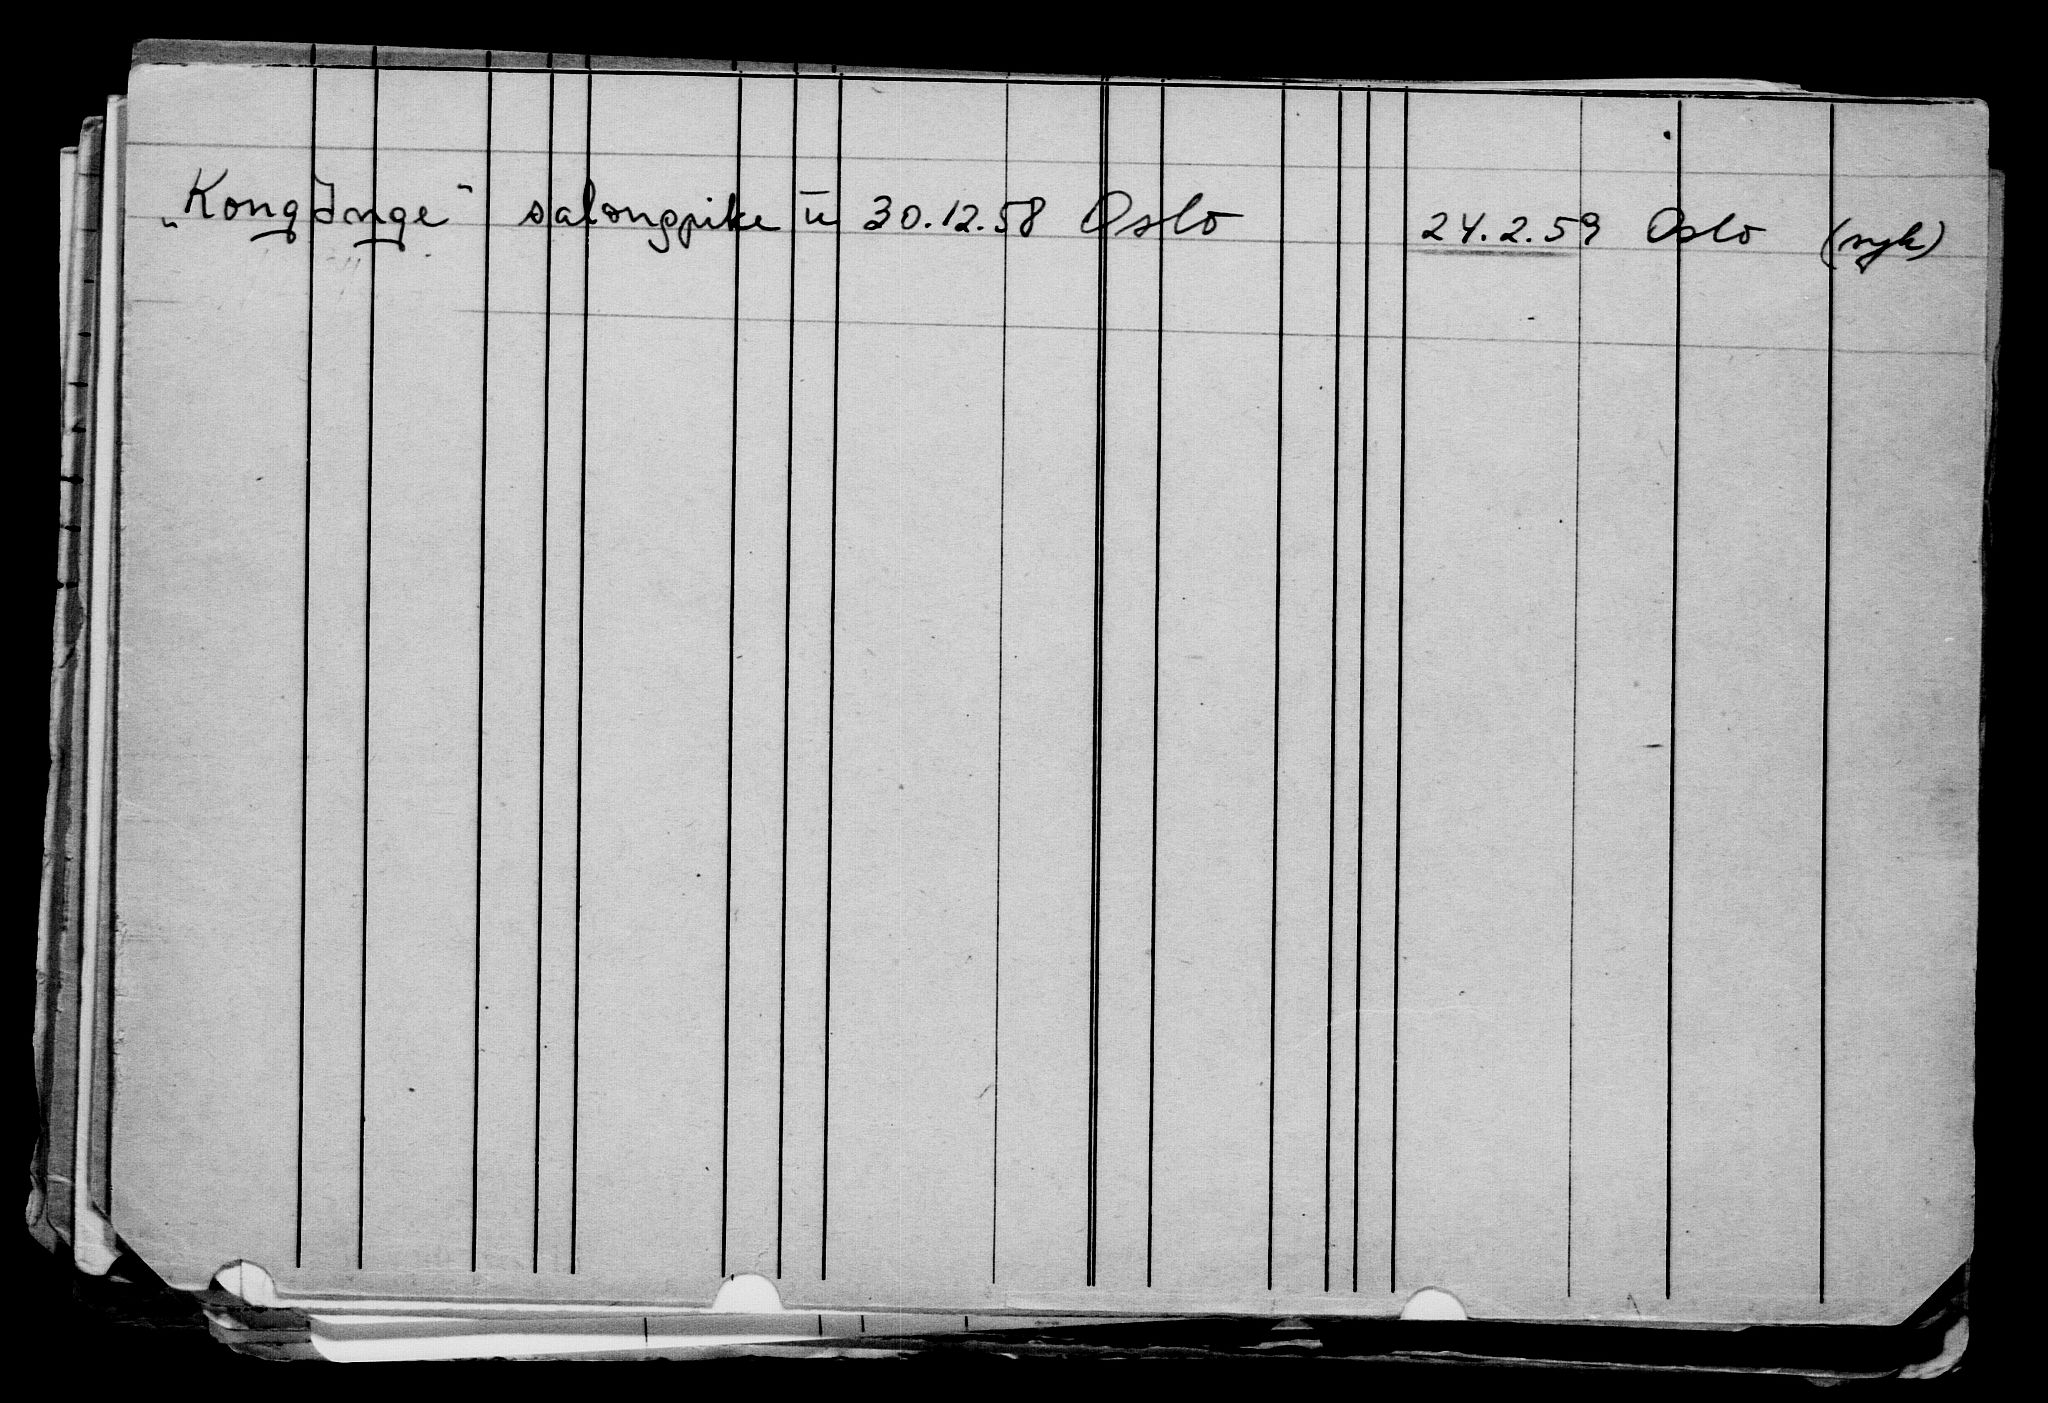 „Kong Inge" salongpike II 30.12.58 Oslo 24.2.59 Oslo (syk)